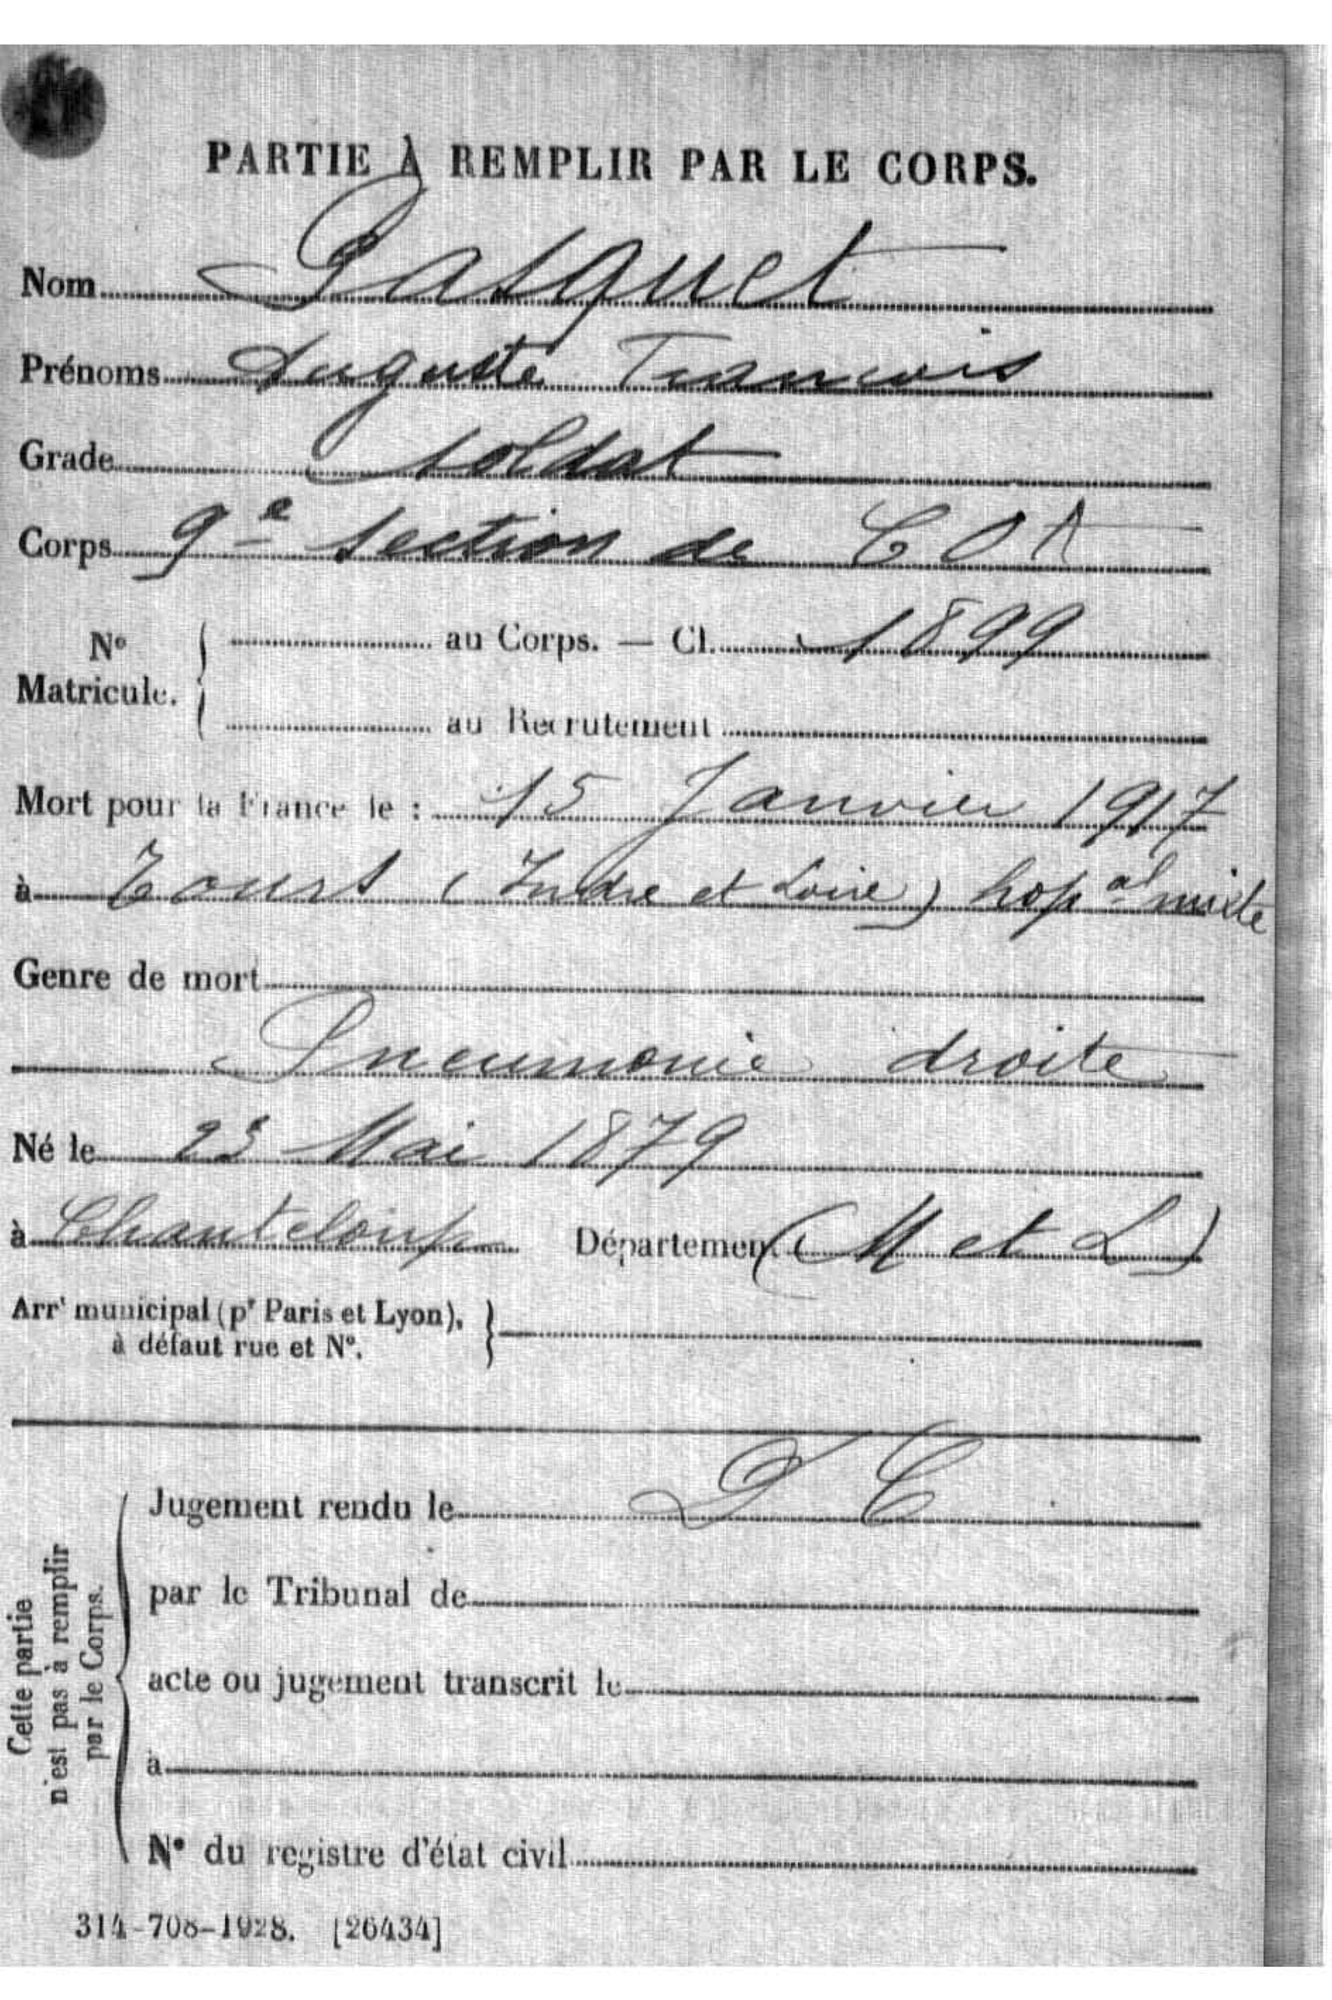 PARTIE À REMPLIR PAR LE CORPS.
Nom Pasquet
Prénoms Auguste Francois
Grade soldat
Corps 9e section de COA
No Matricule. { au Corps. — Cl. 1899
au Recrutement
Mort pour la France le : 15 Janvier 1917
à Tours (Indre et Loire) hopal mixte
Genre de mort
Pneumonie droite
Né le Mai 1879
à Chanteloup Département (M et L)
Arrt municipal (pr Paris et Lyon), }
à défaut rue et No.
Jugement rendu le D C
par le Tribunal de
acte ou jugement transcrit le
à
No du registre d'état civil
Cette partie
n'est pas à remplir
par le Corps.
314-708-1928. [26434]